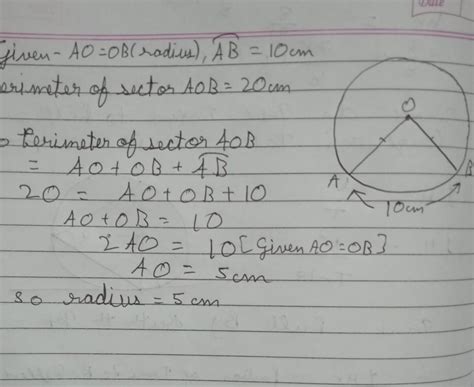 Date
Given - AO=OB(radius), AB = 10cm
erimeter of sector AOB = 20cm
Perimeter of sector AOB
= AO + OB + AB
20 = AO + OB + 10
AO + OB = 10
2 AO = 10 [Given AO = OB]
AO = 5cm
so radius = 5 cm
O
A
B
10cm